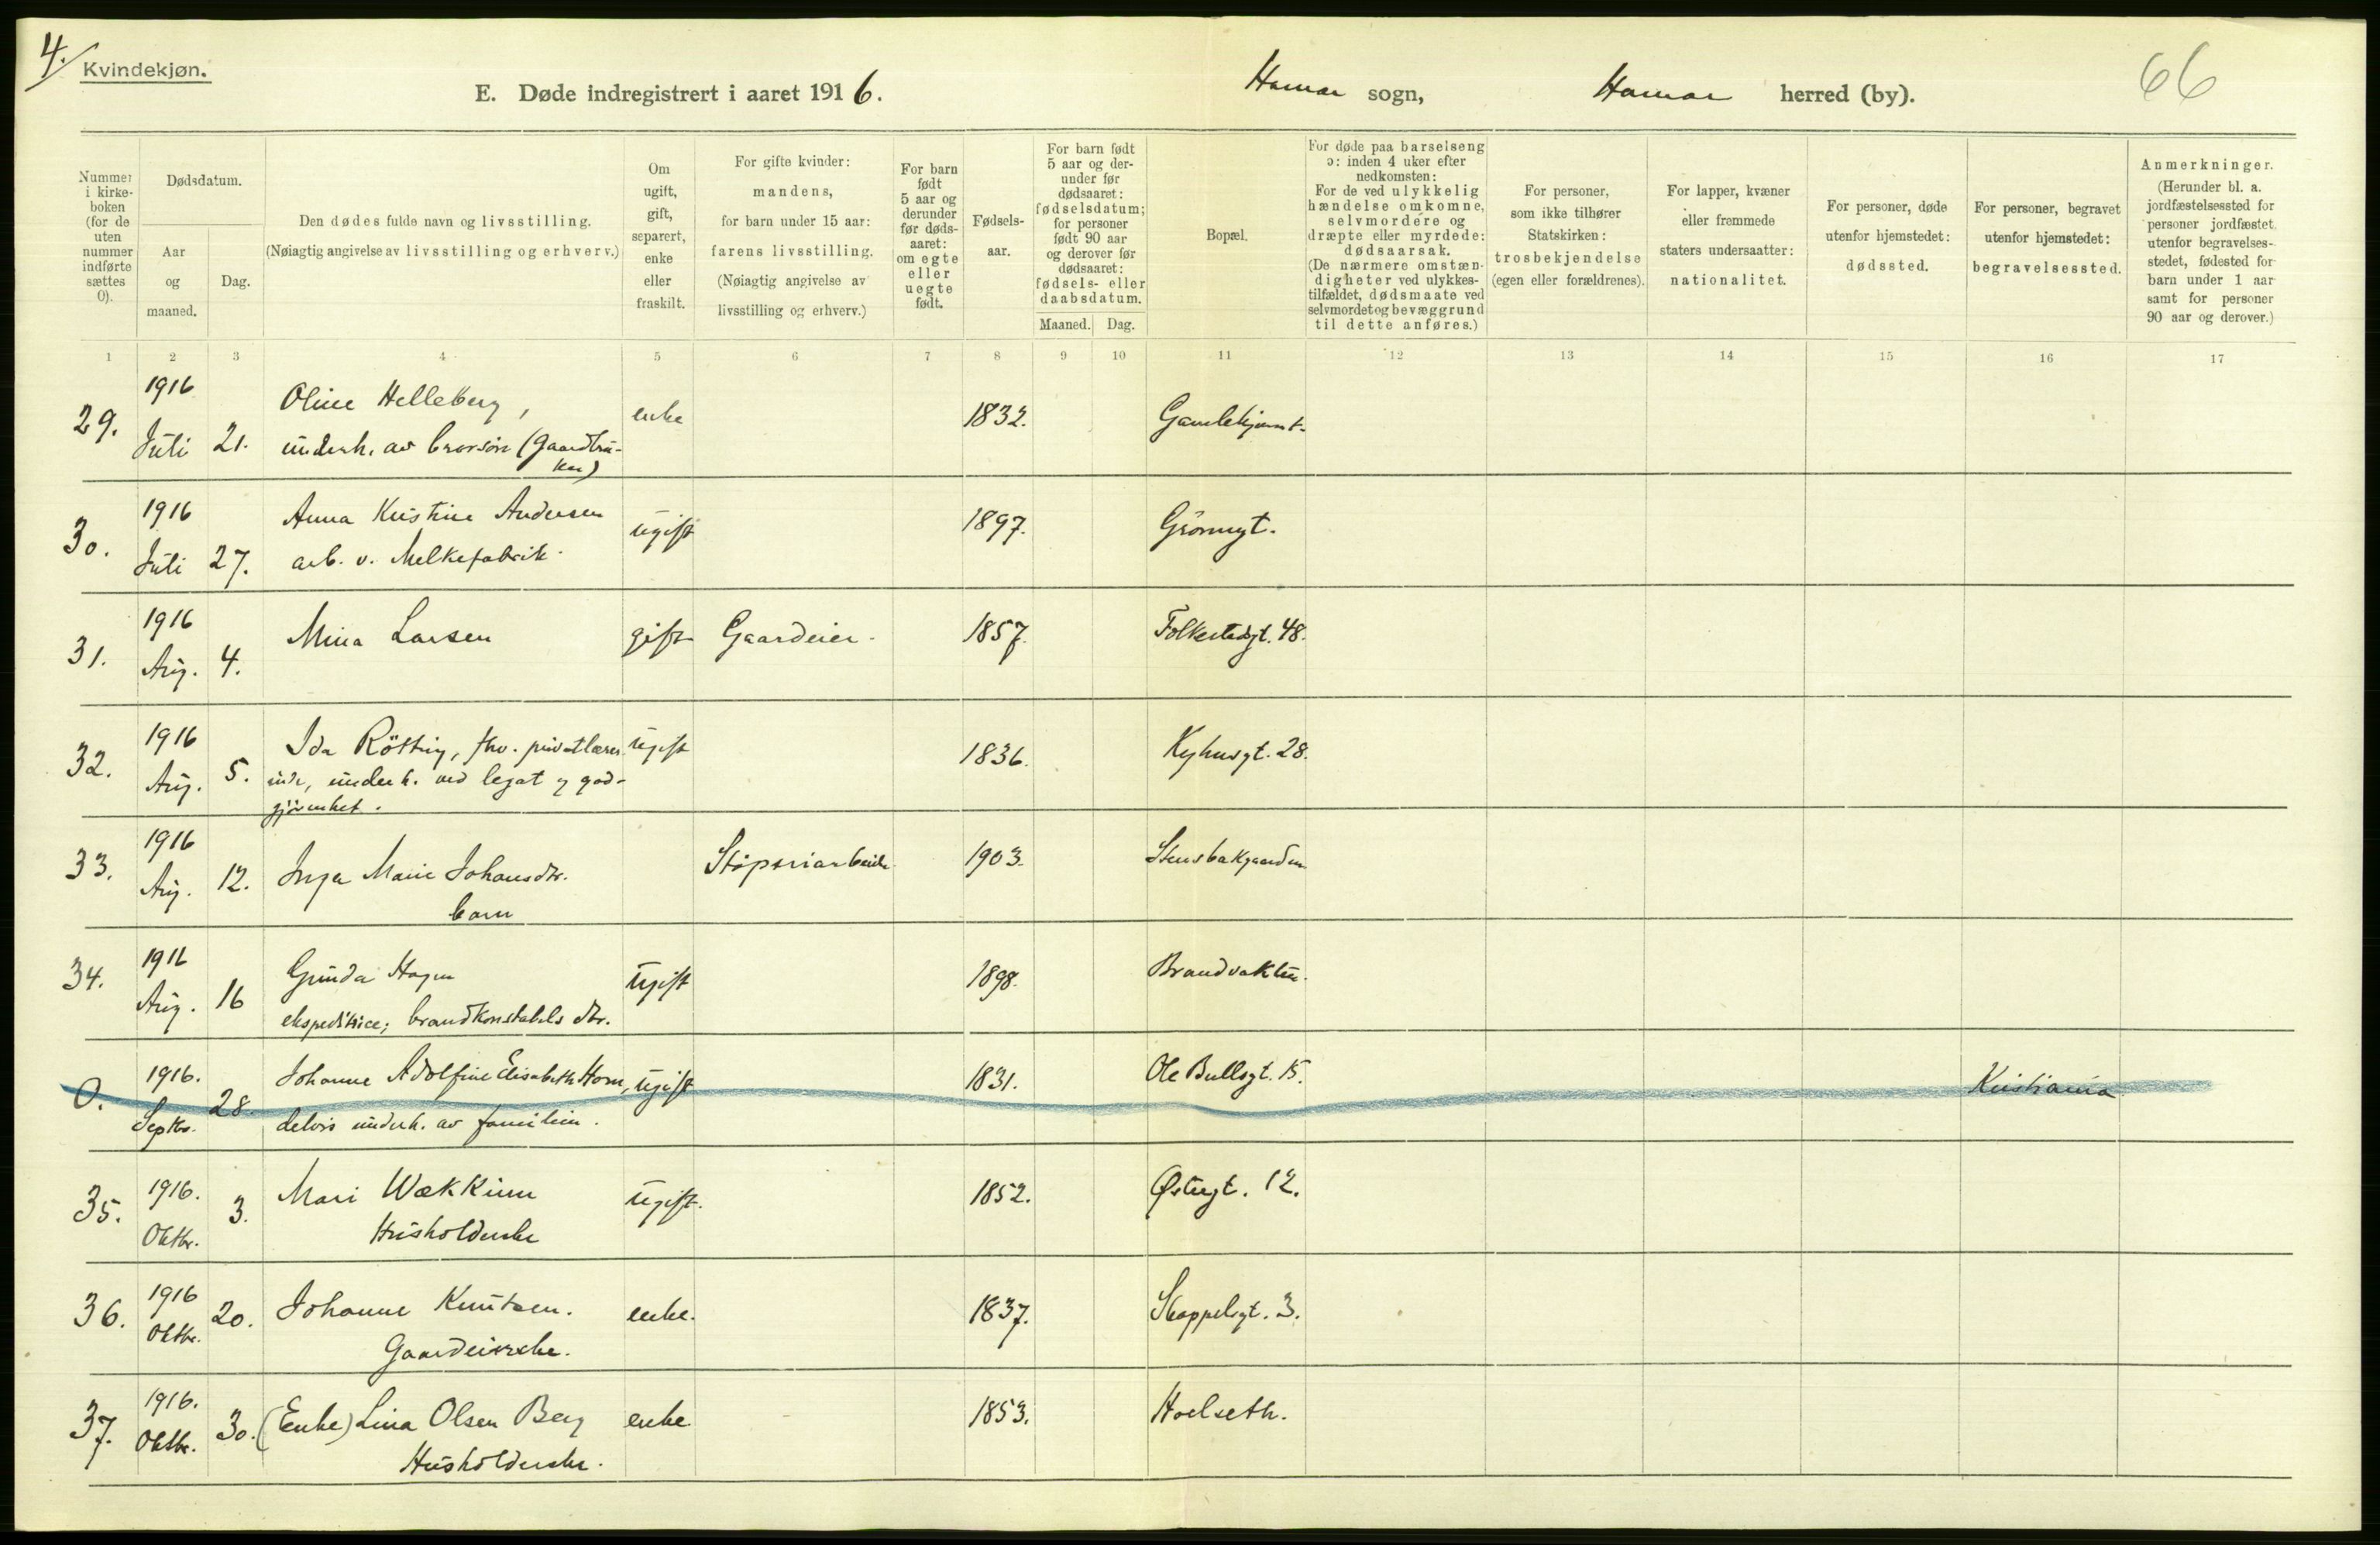 4.
Kvindekjøn.
E. Døde indregistrert i aaret 1916.
Hamar sogn,
Hamar herred (by).
66
Nummer i kirkeboken (for de uten nummer indførte sættes 0).
Dødsdatum.
Aar og maaned.
Dag.
Den dødes fulde navn og livsstilling.
(Nøiagtig angivelse av livsstilling og erhverv.)
Om ugift, gift, separert, enke eller fraskilt.
For gifte kvinder:
mandens,
for barn under 15 aar:
farens livsstilling.
(Nøiagtig angivelse av
livsstilling og erhverv.)
For barn født 5 aar og derunder før dødsaaret: om egte eller uegte født.
Fødselsaar.
For barn født 5 aar og derunder før dødsaaret: fødselsdatum; for personer født 90 aar og derover før dødsaaret: fødsels- eller daabsdatum.
Maaned. Dag.
Bopæl.
For døde paa barselseng
ɔ: inden 4 uker efter
nedkomsten:
For de ved ulykkelig
hændelse omkomne,
selvmordere og
dræpte eller myrdede:
dødsaarsak.
(De nærmere omstæn-
digheter ved ulykkes-
tilfældet, dødsmaate ved
selvmordet og bevæggrund
til dette anføres.)
For personer,
som ikke tilhører
Statskirken:
trosbekjendelse
(egen eller forældrenes).
For lapper, kvæner
eller fremmede
staters undersaatter:
nationalitet.
For personer, døde
utenfor hjemstedet:
dødssted.
For personer, begravet
utenfor hjemstedet:
begravelsessted.
Anmerkninger.
(Herunder bl. a.
jordfæstelsessted for
personer jordfæstet
utenfor begravelses-
stedet, fødested for
barn under 1 aar
samt for personer
90 aar og derover.)
1 2 3 4 5 6 7 8 9 10 11 12 13 14 15 16 17
29. 1916 Juli 21. Oline Helleberg, enke 1832. Gamlehjemt.
underh. av brorsön (Gaardbru-
ker)
30. 1916 Juli 27. Anna Kristine Andersen ugift 1897. Grönnegt.
arb. v. Melkefabrik.
31. 1916 Aug. 4. Mina Larsen gift Gaardeier. 1857. Folkestadgt. 48.
32. 1916 Aug. 5. Ida Rötting, fhv. privatlærer- ugift 1836. Kyhusgt. 28.
inde, underh. ved legat og god-
gjörenhet.
33. 1916 Aug. 12. Inga Marie Johansdtr. Støperiarbeider 1903. Stensbakgaarden
barn
34. 1916 Aug. 16 Gunda Hagen ugift 1898. Brandvakten.
ekspeditrice; brandkonstabels dtr.
0. 1916. Septbr. 28. Johanne Adolfine Elisabeth Horn, ugift 1831. Ole Bullsgt. 15. Kristiania
delvis underh. av familien.
35. 1916. Oktbr. 3. Mari Wækkinn ugift. 1852. Østregt. 12.
Husholderske
36. 1916 Oktbr. 20. Johanne Knutsen. enke. 1837. Skappelsgt. 3.
Gaardeierske.
37. 1916. Oktbr. 30. (Enke) Lina Olsen Berg enke 1853. Hoelseth.
Husholderske.